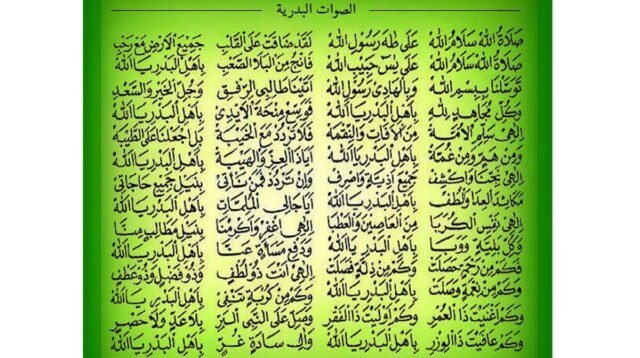 الصوات البدرية
صَلَاةُ اللهْ سَلَامُ اللهْ عَلَى طٰهَ رَسُوْلِ اللهْ
صَلَاةُ اللهْ سَلَامُ اللهْ عَلَى يٰسٓ حَبِيْبِ اللهْ
تَوَسَّلْنَا بِبِسْمِ اللهْ وَبِالْهَادِى رَسُوْلِ اللهْ
وَكُلِّ مُجَاهِدٍ لِلّٰهْ بِاَهْلِ الْبَدْرِ يَا اللهْ
اِلٰهِى سَلِّمِ الْاُمَّةْ مِنَ الْاٰفَاتِ وَالنِّقْمَةْ
وَمِنْ هَمٍّ وَمِنْ غُمَّةْ بِاَهْلِ الْبَدْرِ يَا اللهْ
اِلٰهِى نَجِّنَا وَاكْشِفْ جَمِيْعَ اَذِيَّةٍ وَاصْرِفْ
مَكَائِدَ الْعِدَا وَالْطُفْ بِاَهْلِ الْبَدْرِ يَا اللهْ
اِلٰهِى نَفِّسِ الْكُرَبَا مِنَ الْعَاصِيْنَ وَالْعَطْبَا
وَكُلِّ بَلِيَّةٍ وَوَبَا بِاَهْلِ الْبَدْرِ يَا اللهْ
فَكَمْ مِنْ رَحْمَةٍ حَصَلَتْ وَكَمْ مِنْ ذِلَّةٍ فَصَلَتْ
وَكَمْ مِنْ نِعْمَةٍ وَصَلَتْ بِاَهْلِ الْبَدْرِ يَا اللهْ
وَكَمْ اَغْنَيْتَ ذَا الْعُمْرِ وَكَمْ اَوْلَيْتَ ذَا الْفَقْرِ
وَكَمْ عَافَيْتَ ذَا الْوِزْرِ بِاَهْلِ الْبَدْرِ يَا اللهْ
لَقَدْ ضَاقَتْ عَلَى الْقَلْبِ جَمِيْعُ الْاَرْضِ مَعْ رَحْبِ
فَانْجِ مِنَ الْبَلَا الصَّعْبِ بِاَهْلِ الْبَدْرِ يَا اللهْ
اَتَيْنَا طَالِبِى الرِّفْقِ وَجُلِّ الْخَيْرِ وَالسَّعْدِ
فَوَسِّعْ مِنْحَةَ الْاَيْدِىْ بِاَهْلِ الْبَدْرِ يَا اللهْ
فَلَا تَرْدُدْ مَعَ الْخَيْبَةْ بَلِ اجْعَلْنَا عَلَى الطَّيْبَةْ
اَيَا ذَا الْعِزِّ وَالْهَيْبَةْ بِاَهْلِ الْبَدْرِ يَا اللهْ
وَاِنْ تَرْدُدْ فَمَنْ نَأْتِىْ بِنَيْلِ جَمِيْعِ حَاجَاتِى
اَيَا جَالِى الْمُلِمَّاتِ بِاَهْلِ الْبَدْرِ يَا اللهْ
اِلٰهِى اغْفِرْ وَاَكْرِمْنَا بِنَيْلِ مَطَالِبٍ مِنَّا
وَدَفْعِ مَسَاءَةٍ عَنَّا بِاَهْلِ الْبَدْرِ يَا اللهْ
اِلٰهِى اَنْتَ ذُوْ لُطْفٍ وَذُوْ فَضْلٍ وَذُوْ عَطْفٍ
وَكَمْ مِنْ كُرْبَةٍ تَنْفِىْ بِاَهْلِ الْبَدْرِ يَا اللهْ
وَصَلِّ عَلَى النَّبِى الْبَرِّ بِلَا عَدٍّ وَلَا حَصْرِ
وَاٰلِ سَادَةٍ غُرِّ بِاَهْلِ الْبَدْرِ يَا اللهْ